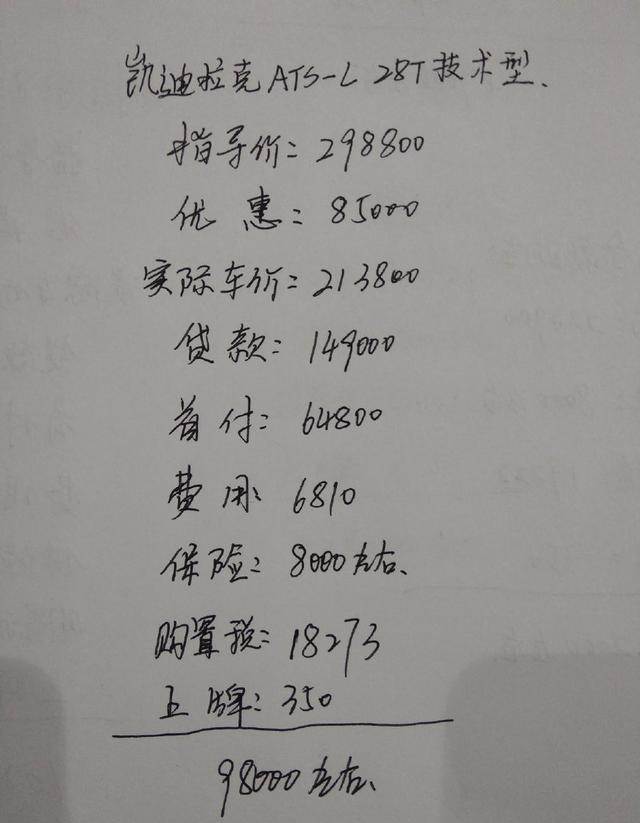 凯迪拉克ATS-L 28T技术型.
指导价:298800
优惠:85000
实际车价:213800
贷款:149000
首付:64800
费用:6810
保险:8000左右.
购置税:18273
上牌:350
98000左右.